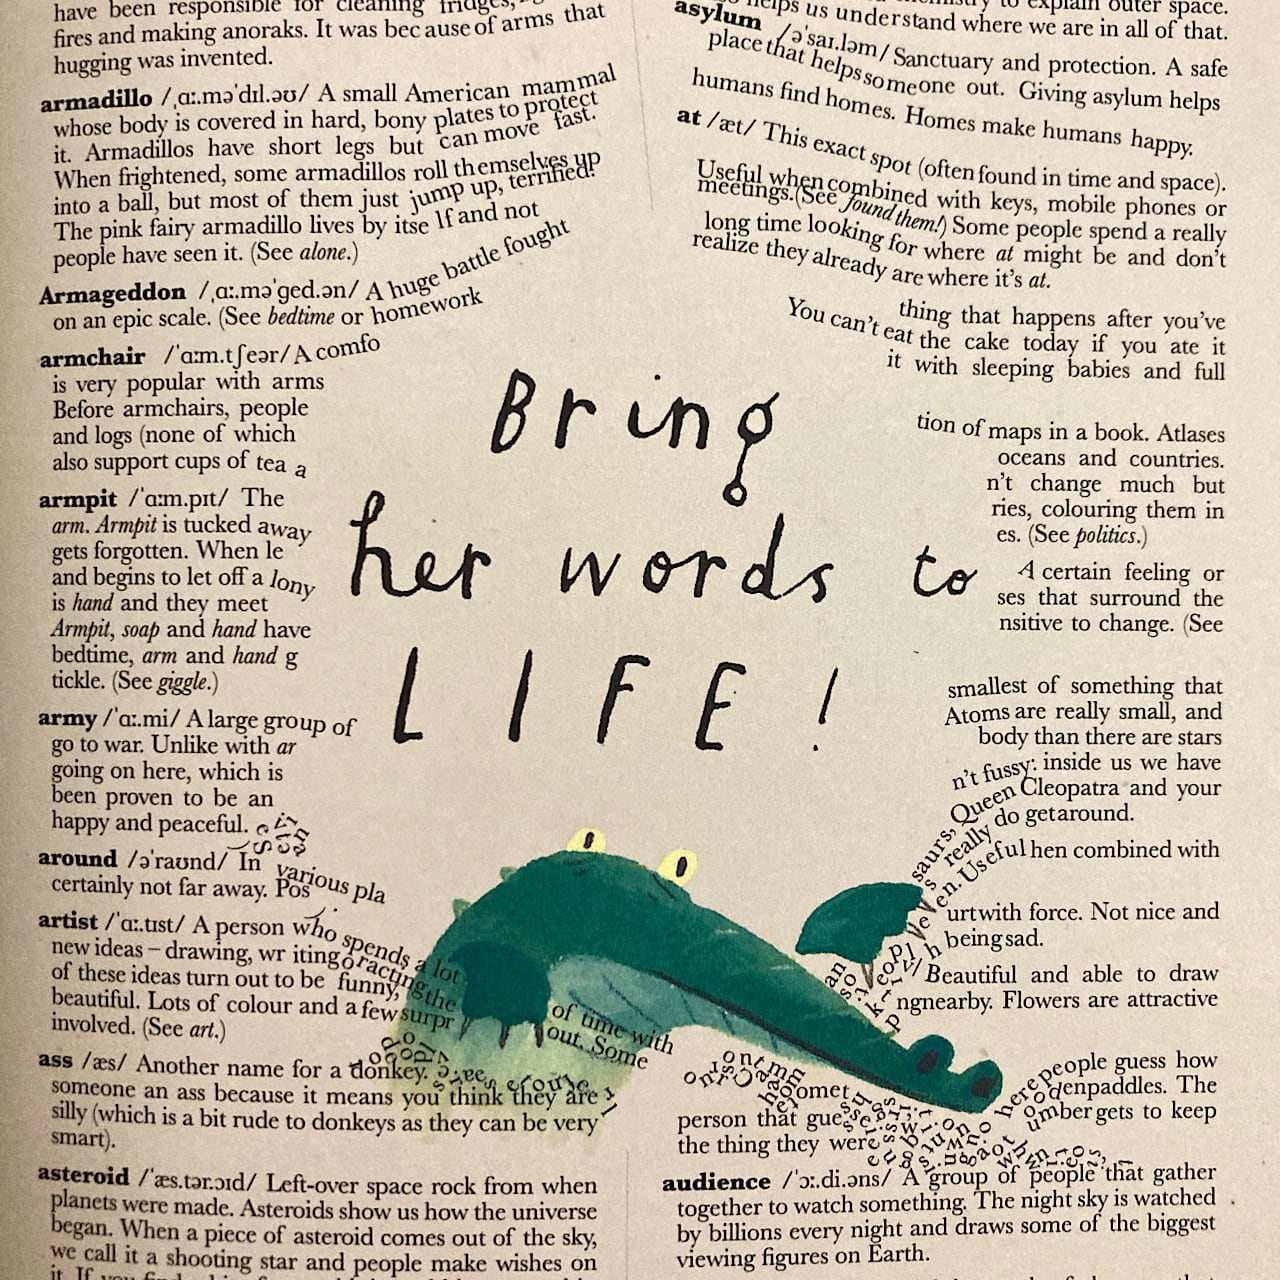 have been responsible for cleaning fridges,
fires and making anoraks. It was bec ause of arms that
hugging was invented.
armadillo /ˌɑː.məˈdɪl.əʊ/ A small American mammal
whose body is covered in hard, bony plates to protect
it. Armadillos have short legs but can move fast.
When frightened, some armadillos roll themselves up
into a ball, but most of them just jump up, terrified!
The pink fairy armadillo lives by itse lf and not
people have seen it. (See alone.)
Armageddon /ˌɑː.məˈɡed.ən/ A huge battle fought
on an epic scale. (See bedtime or homework
armchair /ˈɑːm.tʃeər/ A comfo
is very popular with arms
Before armchairs, people
and logs (none of which
also support cups of tea a
armpit /ˈɑːm.pɪt/ The
arm. Armpit is tucked away
gets forgotten. When le
and begins to let off a lony
is hand and they meet
Armpit, soap and hand have
bedtime, arm and hand g
tickle. (See giggle.)
army /ˈɑː.mi/ A large group of
go to war. Unlike with ar
going on here, which is
been proven to be an
happy and peaceful.
around /əˈraʊnd/ In various pla
certainly not far away. Pos
artist /ˈɑː.tɪst/ A person who spends a lot
new ideas – drawing, wr iting or acting the
of these ideas turn out to be funny,
beautiful. Lots of colour and a few surpr
involved. (See art.)
of time with
out. Some
ass /æs/ Another name for a donkey.
someone an ass because it means you think they are
silly (which is a bit rude to donkeys as they can be very
smart).
asteroid /ˈæs.tər.ɔɪd/ Left-over space rock from when
planets were made. Asteroids show us how the universe
began. When a piece of asteroid comes out of the sky,
we call it a shooting star and people make wishes on
it. If you find
Bring
her words to
LIFE!
to explain outer space.
helps us understand where we are in all of that.
asylum /əˈsaɪ.ləm/ Sanctuary and protection. A safe
place that helps someone out. Giving asylum helps
humans find homes. Homes make humans happy.
at /æt/ This exact spot (often found in time and space).
Useful when combined with keys, mobile phones or
meetings. (See found them!) Some people spend a really
long time looking for where at might be and don't
realize they already are where it's at.
thing that happens after you've
You can't eat the cake today if you ate it
it with sleeping babies and full
tion of maps in a book. Atlases
oceans and countries.
n't change much but
ries, colouring them in
es. (See politics.)
A certain feeling or
ses that surround the
nsitive to change. (See
smallest of something that
Atoms are really small, and
body than there are stars
n't fussy: inside us we have
saurs, Queen Cleopatra and your
s really do get around.
ven. Useful hen combined with
urt with force. Not nice and
h being sad.
Beautiful and able to draw
ng nearby. Flowers are attractive
here people guess how
odenpaddles. The
umber gets to keep
omet
person that gue
the thing they were
audience /ˈɔː.di.əns/ A group of people that gather
together to watch something. The night sky is watched
by billions every night and draws some of the biggest
viewing figures on Earth.